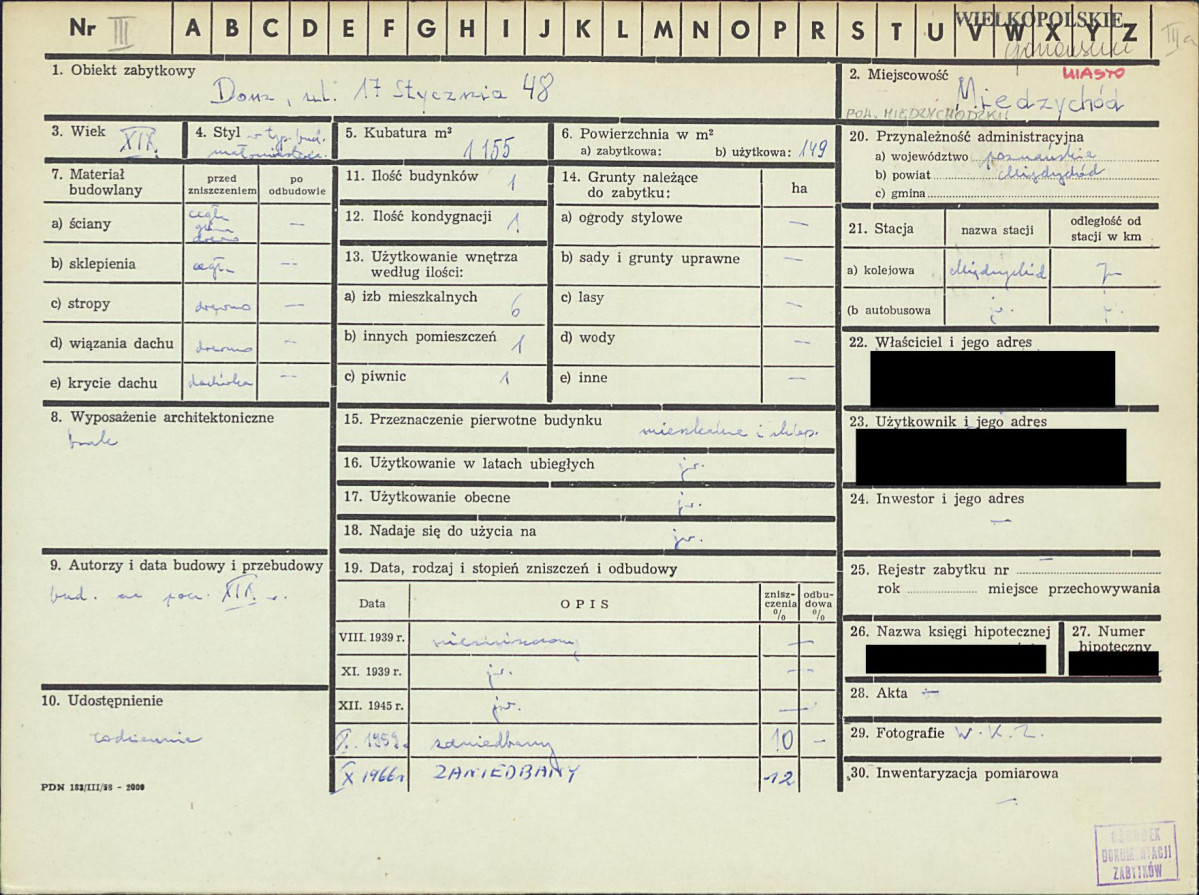 Nr III A B C D E F G H I J K L M N O P R S T U V W X Y Z III a
WIELKOPOLSKIE
1. Obiekt zabytkowy
Dom, ul. 17 Stycznia 48
2. Miejscowość MIASTO
Międzychód
POW. MIĘDZYCHODZKI
3. Wiek XIX.
4. Styl w typ. bud.
małomiast.
5. Kubatura m³
1155
6. Powierzchnia w m²
a) zabytkowa: b) użytkowa: 149
20. Przynależność administracyjna
a) województwo poznańskie
b) powiat Międzychód
c) gmina
7. Materiał budowlany
przed zniszczeniem
po odbudowie
a) ściany cegła glina drewno —
b) sklepienia cegła —
c) stropy drewno —
d) wiązania dachu drewno —
e) krycie dachu dachówka —
11. Ilość budynków 1
12. Ilość kondygnacji 1
13. Użytkowanie wnętrza
według ilości:
a) izb mieszkalnych 6
b) innych pomieszczeń 1
c) piwnic 1
14. Grunty należące
do zabytku: ha
a) ogrody stylowe —
b) sady i grunty uprawne —
c) lasy —
d) wody —
e) inne —
21. Stacja
nazwa stacji
odległość od
stacji w km
a) kolejowa Międzychód
(b autobusowa j.
22. Właściciel i jego adres
23. Użytkownik i jego adres
24. Inwestor i jego adres
—
8. Wyposażenie architektoniczne
brak
15. Przeznaczenie pierwotne budynku mieszkalne i sklep.
16. Użytkowanie w latach ubiegłych jw.
17. Użytkowanie obecne jw.
18. Nadaje się do użycia na jw.
9. Autorzy i data budowy i przebudowy
bud. na pocz. XIX w.
19. Data, rodzaj i stopień zniszczeń i odbudowy
Data OPIS znisz-
czenia
% odbu-
dowa
%
VIII. 1939 r. niezniszczony —
XI. 1939 r. jw. —
XII. 1945 r. jw. —
X. 1959r. zaniedbany 10 —
X 1966r ZANIEDBANY 12
10. Udostępnienie
codziennie
25. Rejestr zabytku nr —
rok miejsce przechowywania
26. Nazwa księgi hipotecznej
27. Numer
hipoteczny
28. Akta —
29. Fotografie W. K. Z.
30. Inwentaryzacja pomiarowa
—
PDN 183/III/58 - 2000
OŚRODEK
DOKUMENTACJI
ZABYTKÓW